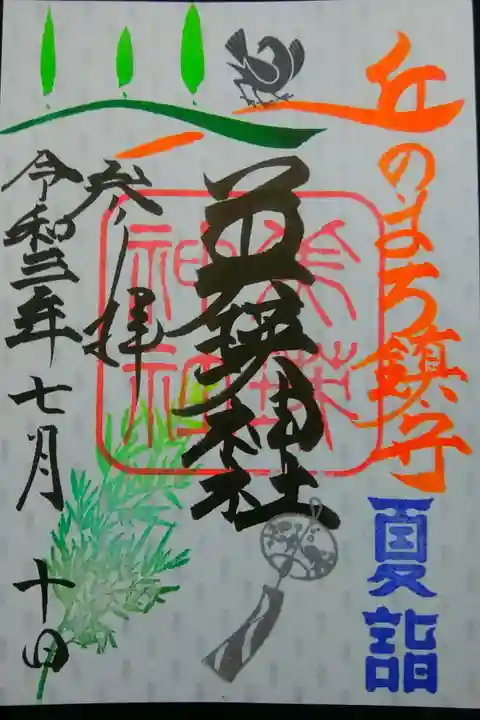 丘のまち鎮守
夏詣
美瑛神社
美瑛
神社
参拝
令和三年七月十日